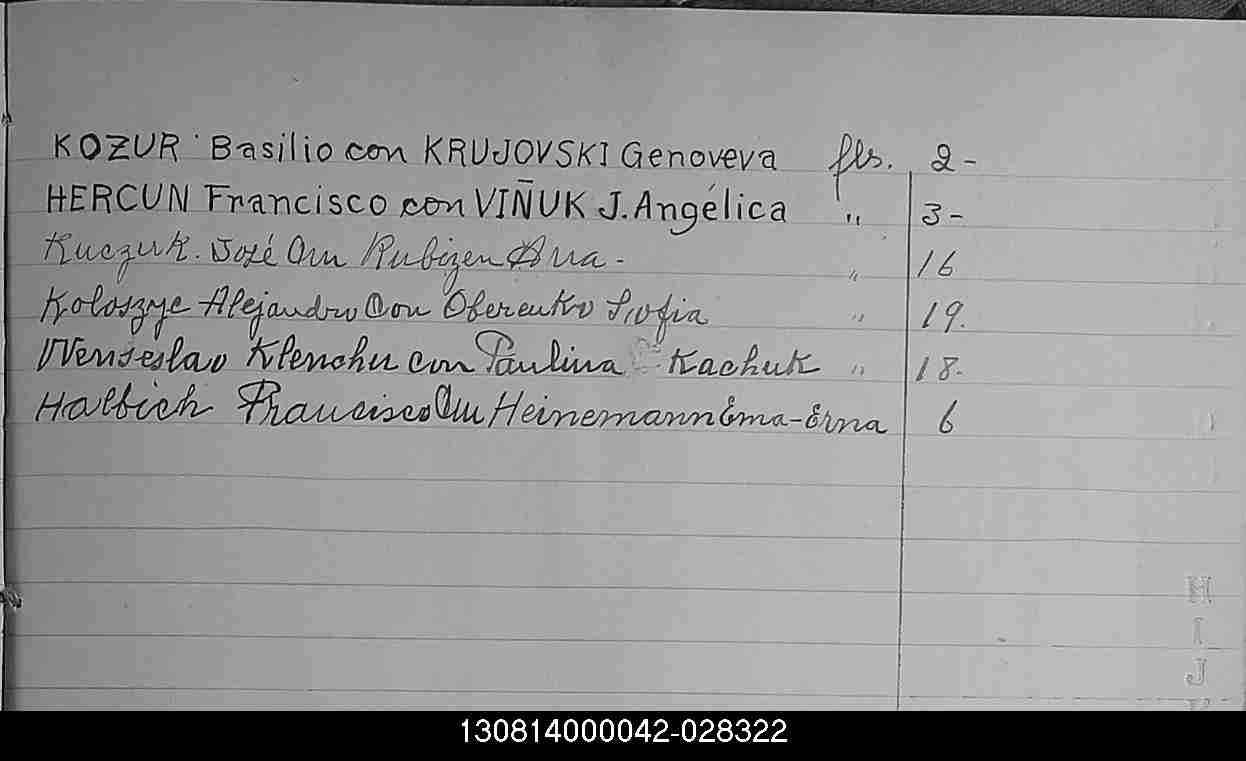 KOZUR Basilio con KRUJOVSKI Genoveva fls. 2-
HERCUN Francisco con VIÑUK J. Angélica " 3-
Kuczuk. José Con Rubizen Ana - " 16
Koloszyc Alejandro Con Oberenko Sofia " 19.
Wenseslao Klenchu con Paulina Kachuk " 18-
Halbich Francisco Con Heinemann Ema-Erna 6
H
I
J
130814000042-028322